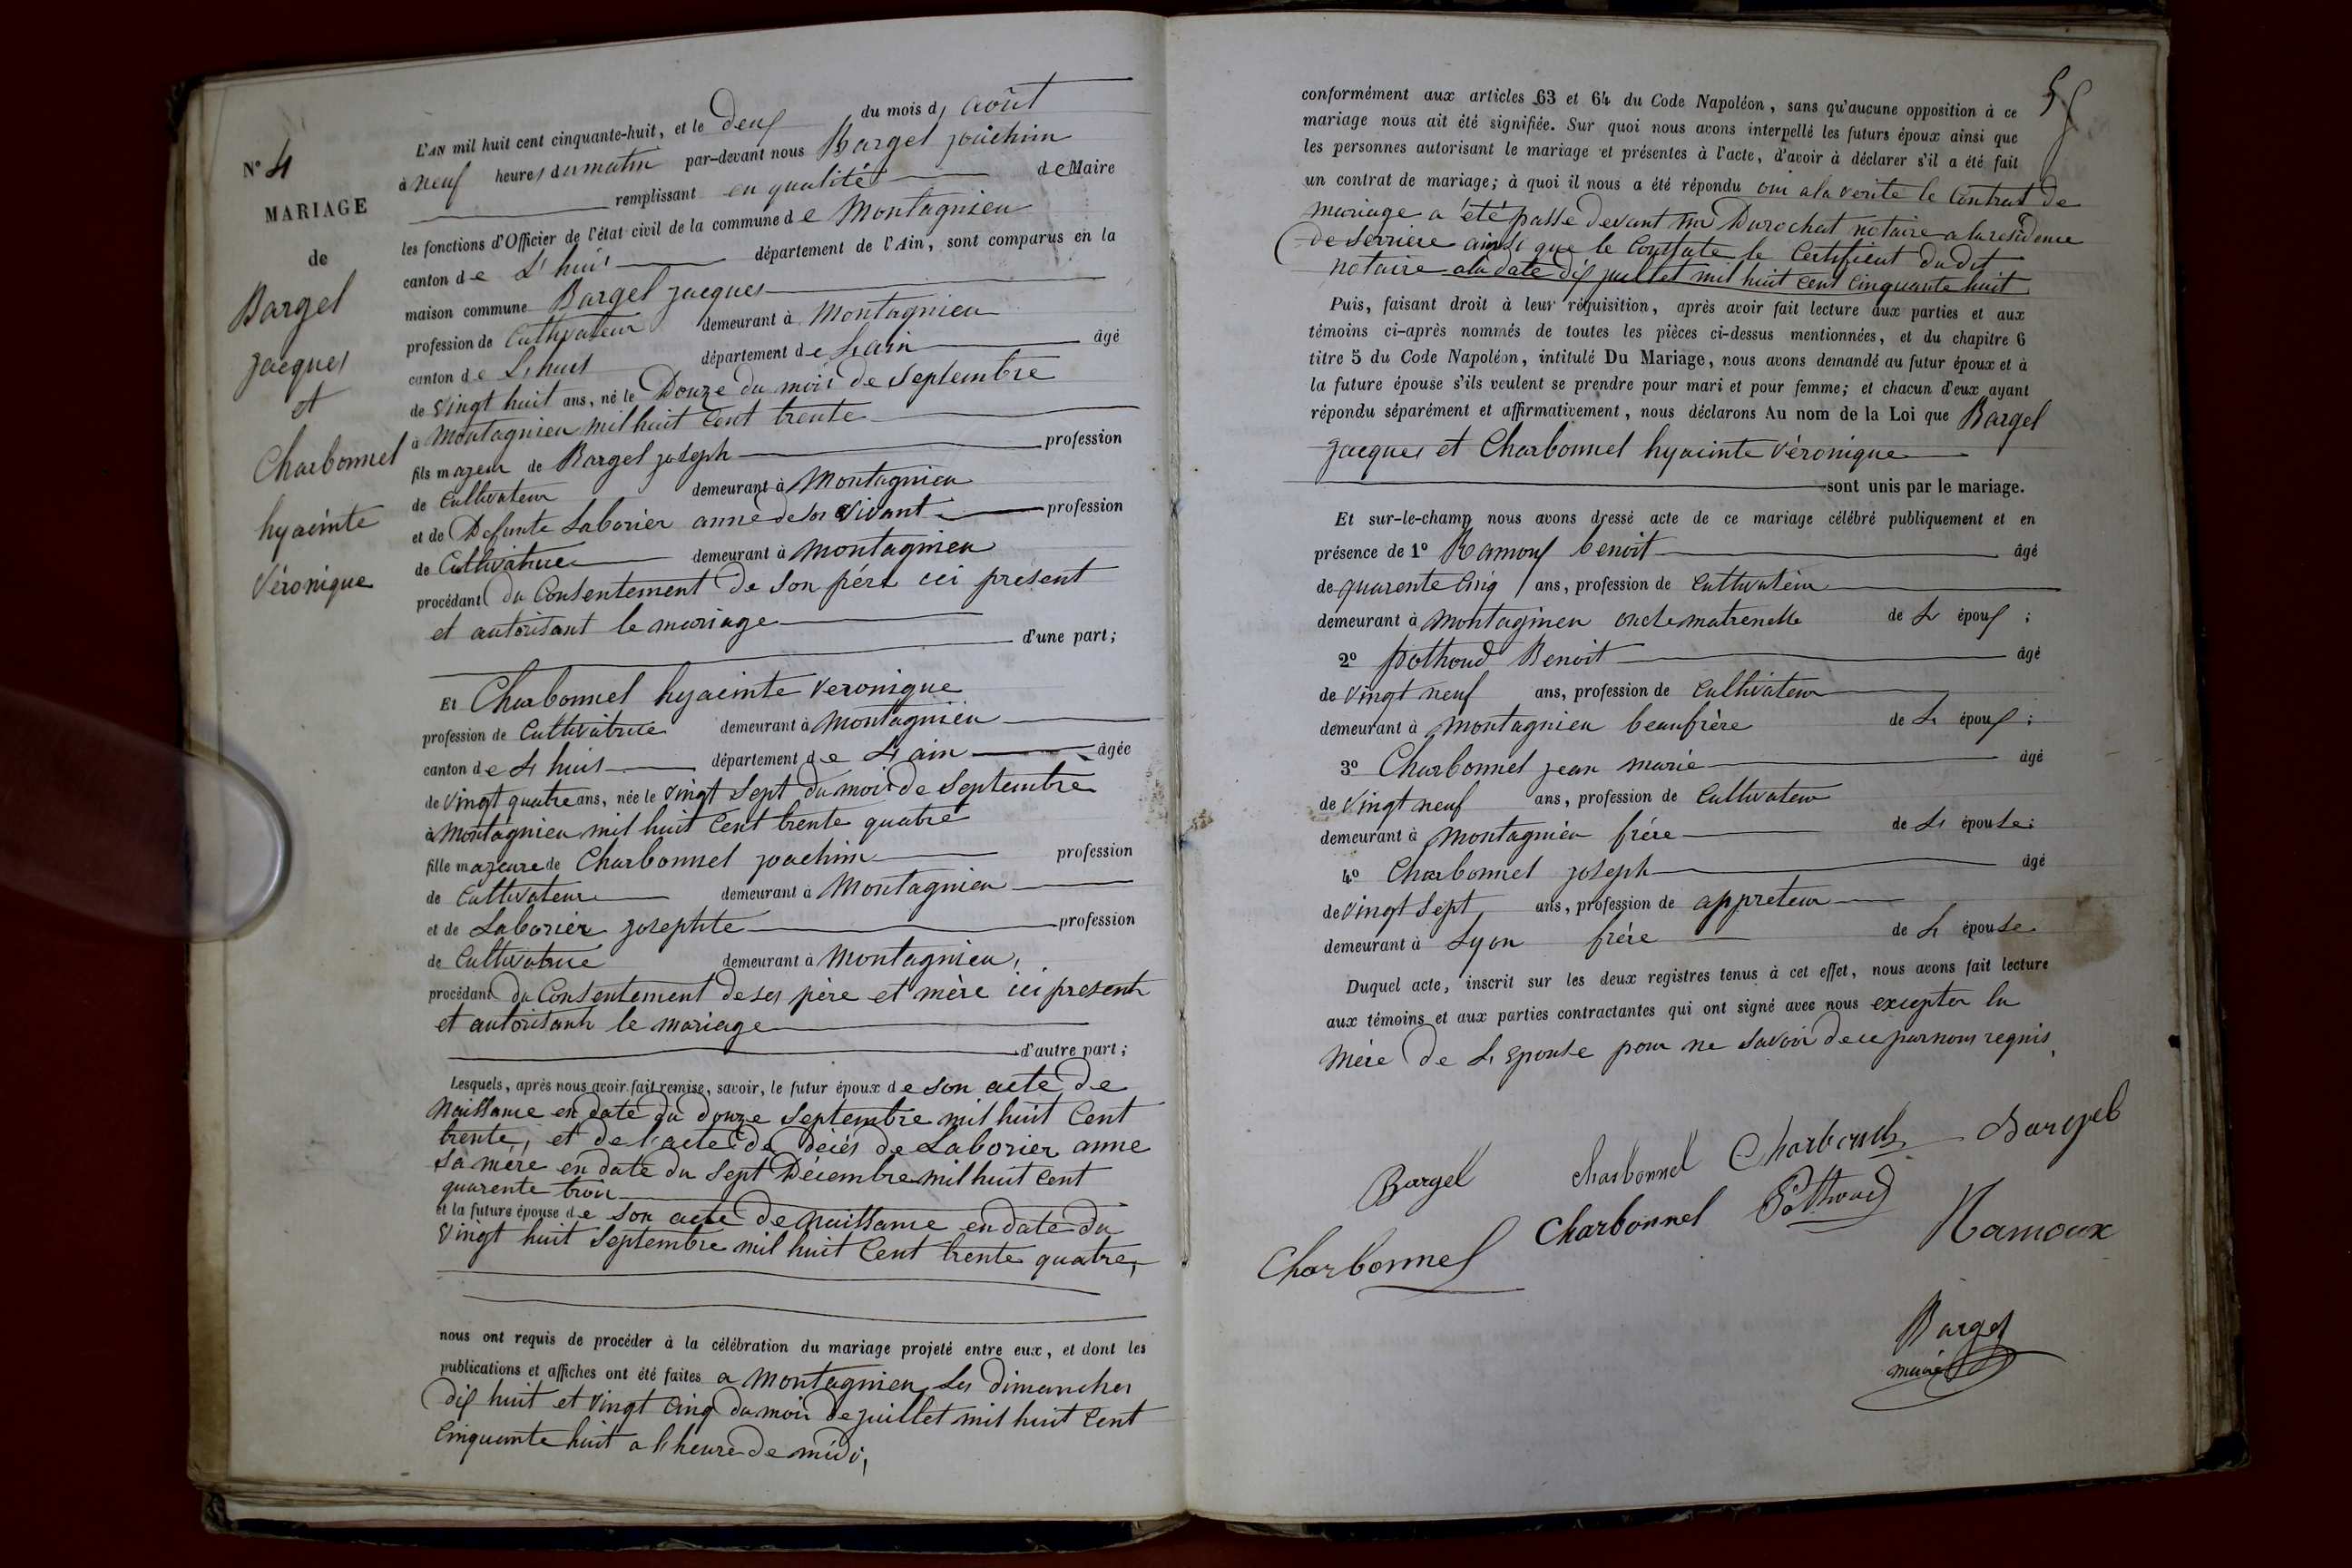 N° 4
MARIAGE
de
Bargel
jacques
et
Charbonnel
hyacinte
Véronique
L'AN mil huit cent cinquante-huit, et le Deux du mois d août
à neuf heures du matin par-devant nous Bargel joachim
remplissant en qualité de Maire
les fonctions d'Officier de l'état civil de la commune de Montagnieu
canton de L'huis département de l'Ain, sont comparus en la
maison commune Bargel jacques
profession de Cultivateur demeurant à Montagnieu
canton de Lhuis département de Lain âgé
de vingt huit ans, né le Douze du mois de Septembre
à Montagnieu mil huit Cent trente
fils majeur de Bargel joseph profession
de Cultivateur demeurant à Montagnieu
et de Defunte Laborier anne de son vivant profession
de Cultivatrice demeurant à Montagnieu
procédant du Consentement de son père ici présent
et autorisant le mariage
d'une part;
Et Charbonnel hyacinte Veronique
profession de Cultivatrice demeurant à Montagnieu
canton de Lhuis département de Lain âgée
de vingt quatre ans, née le vingt Sept du mois de Septembre
à Montagnieu mil huit Cent trente quatre
fille majeure de Charbonnel joachim profession
de Cultivateur demeurant à Montagnieu
et de Laborier josephte profession
de Cultivatrice demeurant à Montagnieu,
procédant du Consentement de ses père et mère ici presents
et autorisants le mariage
d'autre part;
Lesquels, après nous avoir fait remise, savoir, le futur époux de son acte de
Naissance en date du douze Septembre mil huit Cent
trente, et de l'acte de décès de Laborier anne
sa mère en date du Sept Décembre mil huit Cent
quarente trois
et la future épouse de son acte de Naissance en date du
vingt huit Septembre mil huit Cent trente quatre,
nous ont requis de procéder à la célébration du mariage projeté entre eux, et dont les
publications et affiches ont été faites a Montagnieu Les dimanches
dix huit et vingt cinq du mois de juillet mil huit Cent
Cinquante huit a l'heure de midi,
conformément aux articles 63 et 64 du Code Napoléon, sans qu'aucune opposition à ce
mariage nous ait été signifiée. Sur quoi nous avons interpellé les futurs époux ainsi que
les personnes autorisant le mariage et présentes à l'acte, d'avoir à déclarer s'il a été fait
un contrat de mariage; à quoi il nous a été répondu oui a la verité le Contrat de
mariage a été passé devant me Durochat notaire a la residence
de Serriere ainsi que le Constate le Certificat du dit
notaire a la date dix juillet mil huit Cent Cinquante huit
Puis, faisant droit à leur réquisition, après avoir fait lecture aux parties et aux
témoins ci-après nommés de toutes les pièces ci-dessus mentionnées, et du chapitre 6
titre 5 du Code Napoléon, intitulé Du Mariage, nous avons demandé au futur époux et à
la future épouse s'ils veulent se prendre pour mari et pour femme; et chacun d'eux ayant
répondu séparément et affirmativement, nous déclarons Au nom de la Loi que Bargel
jacques et Charbonnel hyacinte Véronique
sont unis par le mariage.
Et sur-le-champ nous avons dressé acte de ce mariage célébré publiquement et en
présence de 1° Ramoux benoit âgé
de quarente Cinq ans, profession de Cultivateur
demeurant à Montagnieu oncle matrenelle de L époux;
2° pothoud Benoit âgé
de vingt neuf ans, profession de Cultivateur
demeurant à Montagnieu beaufrère de L époux;
3° Charbonnel jean marie âgé
de vingt neuf ans, profession de Cultivateur
demeurant à Montagnieu frére de L épouse;
4° Charbonnel joseph âgé
de vingt Sept ans, profession de appreteur
demeurant à Lyon frére de L épouse.
Duquel acte, inscrit sur les deux registres tenus à cet effet, nous avons fait lecture
aux témoins et aux parties contractantes qui ont signé avec nous excepter la
mère de L Epouse pour ne savoir de ce par nous requis
Bargel Charbonnel Bargel
Charbonnel Charbonnel Pothoud Ramoux
Bargel
maire